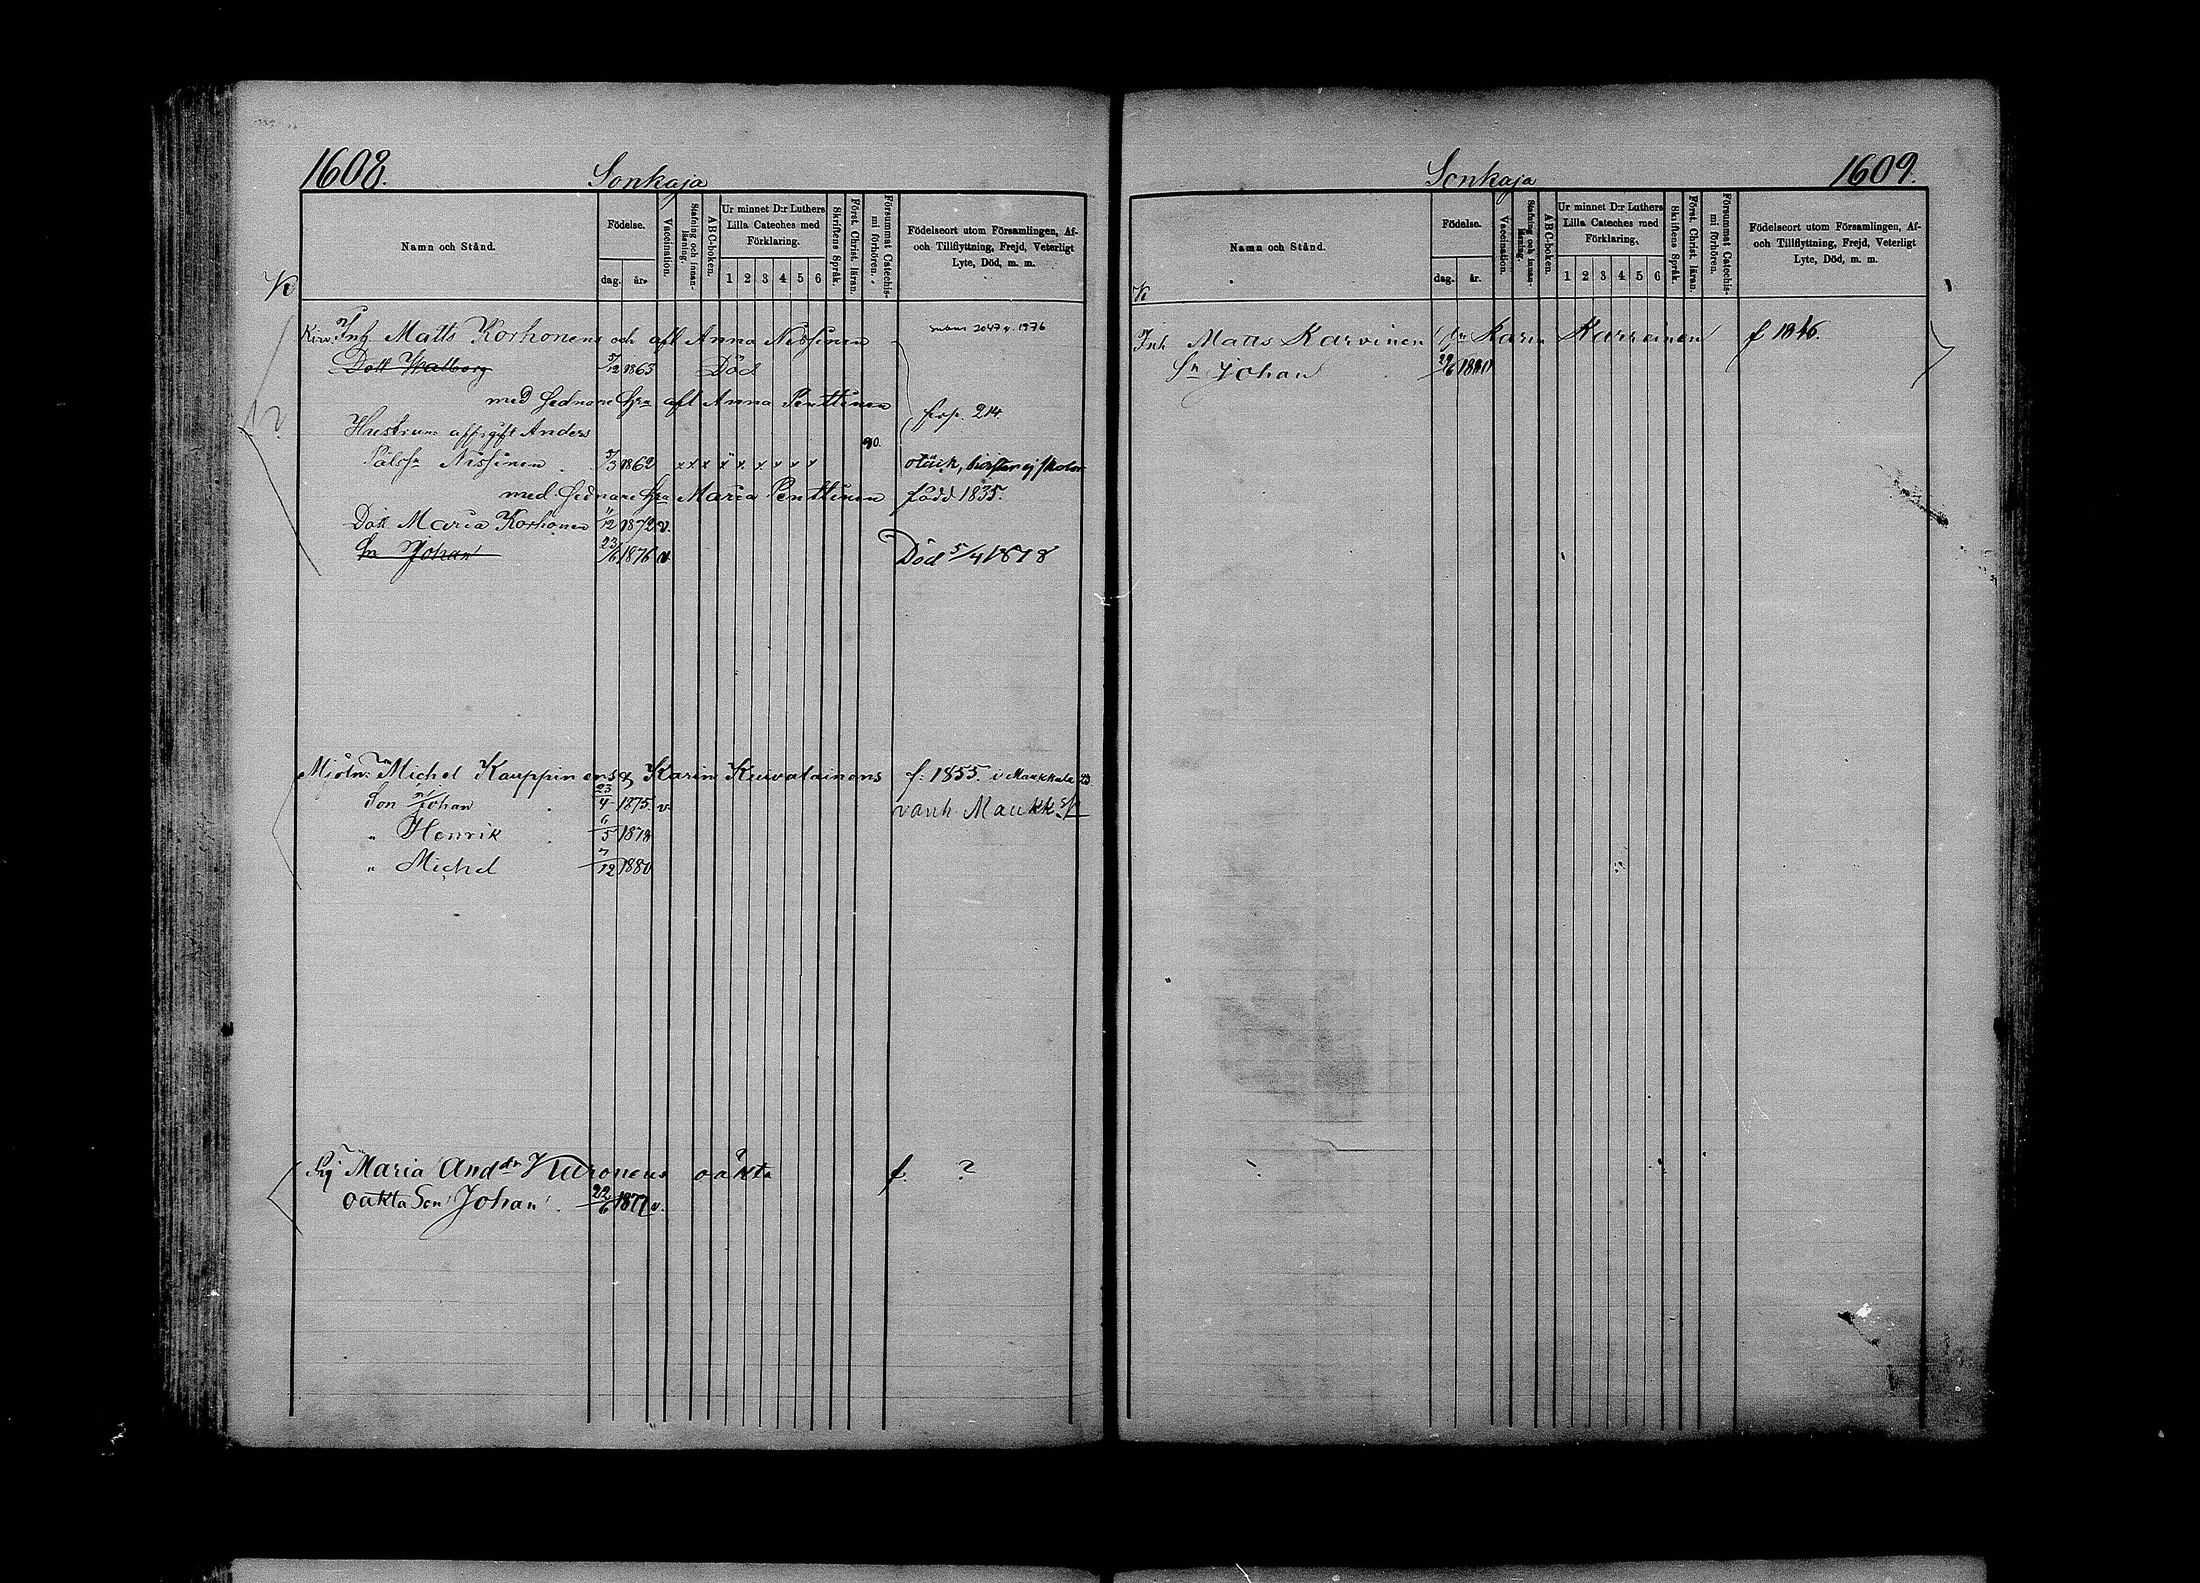 1608.
Sonkaja
Namn och Stånd.
Födelse.
dag.
år.
Vaccination.
Stafning och innan-läsning.
ABC-boken.
Ur minnet D:r Luthers
Lilla Cateches med
Förklaring.
1 2 3 4 5 6
Skriftens Språk.
Först. Christ. läran.
Försummat Catechis-mi förhören.
Födelseort utom Församlingen, Af-
och Tillflyttning, Frejd, Veterligt
Lyte, Död, m. m.
K
Inh Matts Korhonens och afl Anna Nissinen 2047 1976
Dott Walborg 5/12 1863 Död
med sednare hu afl Anna Penttinen frp. 214
Hustrun Anders
Pålss Nissinen 5/3 1862 x x x x x x x x x 90.
med sednare hu Maria Penttinen född 1835.
Dott Maria Korhonen 11/12 1872 v.
Sn Johan 23/6 1876 v. Död 5/4 1878
Mjöln: Michel Kauppinens & Karin Kuvalainens f: 1855. i Maukkula 23.
Son Johan 23/4 1875. v. Maukk
" Henrik 6/5 1878
" Michel 7/12 1880
Maria And Kuronens oäkta f. ?
oäkta Son Johan 22/6 1877 v.
Sonkaja
1609.
Namn och Stånd.
Födelse.
dag.
år.
Vaccination.
Stafning och innan-läsning.
ABC-boken.
Ur minnet D:r Luthers
Lilla Cateches med
Förklaring.
1 2 3 4 5 6
Skriftens Språk.
Först. Christ. läran.
Försummat Catechis-mi förhören.
Födelseort utom Församlingen, Af-
och Tillflyttning, Frejd, Veterligt
Lyte, Död, m. m.
K
Inh Matts Karvinen Karin Karvainen f 1846.
Sn Johan 29/6 1880